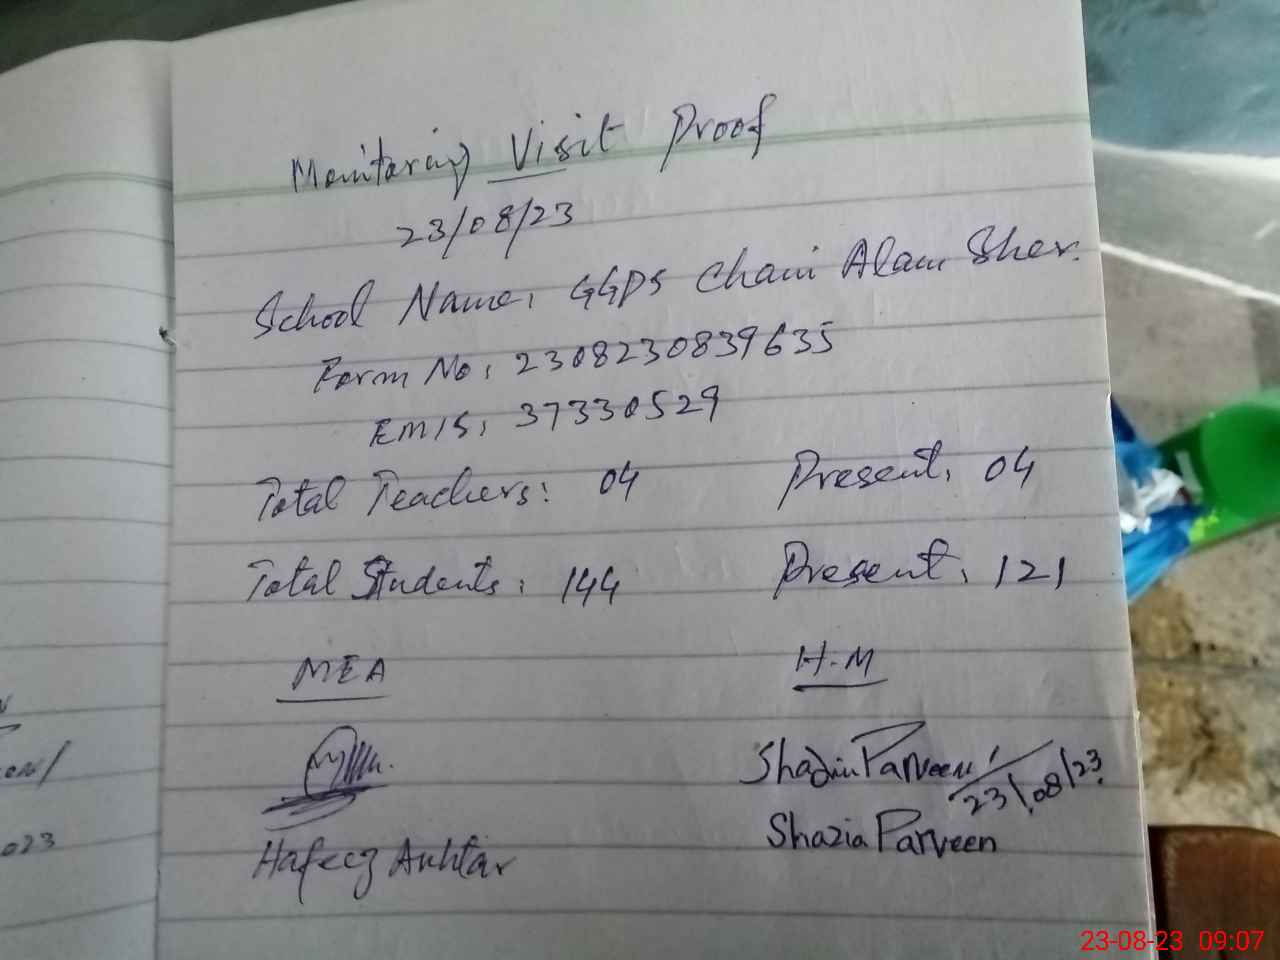 Monitoring Visit Proof
23/08/23
School Name: GGPS Chani Alam Sher.
Form No: 2308230839635
EMIS: 37330529
Total Teachers: 04 Present: 04
Total Students: 144 Present: 121
MEA H.M
Shazia Parveen 23/08/23
Hafeez Akhtar Shazia Parveen
023
23-08-23 09:07